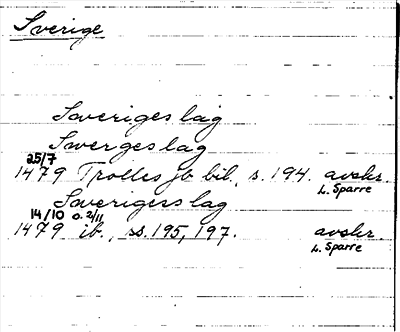 Sverige
Sweriges lag
Swerges lag
25/7
1479 Trolles jb bil, s. 194. avskr.
L. Sparre
Swerigers lag
14/10 o. 2/11
1479 ib., ss. 195, 197. avskr.
L. Sparre